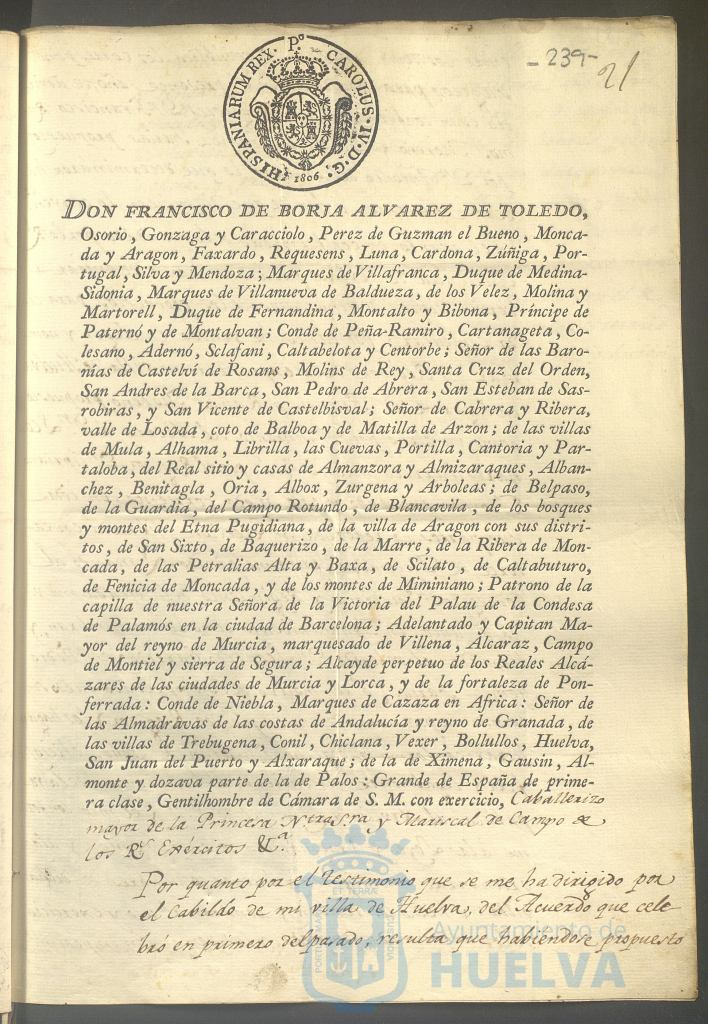 -239-
21
HISPANIARUM REX. P.º CAROLUS. IV. D. G.
1806
DON FRANCISCO DE BORJA ALVAREZ DE TOLEDO,
Osorio, Gonzaga y Caracciolo, Perez de Guzman el Bueno, Monca-
da y Aragon, Faxardo, Requesens, Luna, Cardona, Zúñiga, Por-
tugal, Silva y Mendoza; Marques de Villafranca, Duque de Medina-
Sidonia, Marques de Villanueva de Baldueza, de los Velez, Molina y
Martorell, Duque de Fernandina, Montalto y Bibona, Príncipe de
Paternó y de Montalvan; Conde de Peña-Ramiro, Cartanageta, Co-
lesano, Adernó, Sclafani, Caltabelota y Centorbe; Señor de las Baro-
nías de Castelví de Rosans, Molins de Rey, Santa Cruz del Orden,
San Andres de la Barca, San Pedro de Abrera, San Esteban de Sas-
robiras, y San Vicente de Castelbisval; Señor de Cabrera y Ribera,
valle de Losada, coto de Balboa y de Matilla de Arzon; de las villas
de Mula, Alhama, Librilla, las Cuevas, Portilla, Cantoria y Par-
taloba, del Real sitio y casas de Almanzora y Almizaraques, Alban-
chez, Benitagla, Oria, Albox, Zurgena y Arboleas; de Belpaso,
de la Guardia, del Campo Rotundo, de Blancavila, de los bosques
y montes del Etna Pugidiana, de la villa de Aragon con sus distri-
tos, de San Sixto, de Baquerizo, de la Marre, de la Ribera de Mon-
cada, de las Petralias Alta y Baxa, de Scilato, de Caltabuturo,
de Fenicia de Moncada, y de los montes de Miminiano; Patrono de la
capilla de nuestra Señora de la Victoria del Palau de la Condesa
de Palamós en la ciudad de Barcelona; Adelantado y Capitan Ma-
yor del reyno de Murcia, marquesado de Villena, Alcaraz, Campo
de Montiel y sierra de Segura; Alcayde perpetuo de los Reales Alcá-
zares de las ciudades de Murcia y Lorca, y de la fortaleza de Pon-
ferrada: Conde de Niebla, Marques de Cazaza en Africa: Señor de
las Almadravas de las costas de Andalucía y reyno de Granada, de
las villas de Trebugena, Conil, Chiclana, Vexer, Bollullos, Huelva,
San Juan del Puerto y Alxaraque; de la de Ximena, Gausin, Al-
monte y dozava parte de la de Palos: Grande de España de prime-
ra clase, Gentilhombre de Cámara de S. M. con exercicio, Caballerizo
mayor de la Princesa Ntra. Sra y Mariscal de Campo de
los Rs. Exércitos &.ª
Por quanto por el testimonio que se me ha dirigido por
el Cabildo de mi villa de Huelva, del Acuerdo que cele
bró en primero del pasado, resulta que habiendose propuesto
Ayuntamiento de
HUELVA